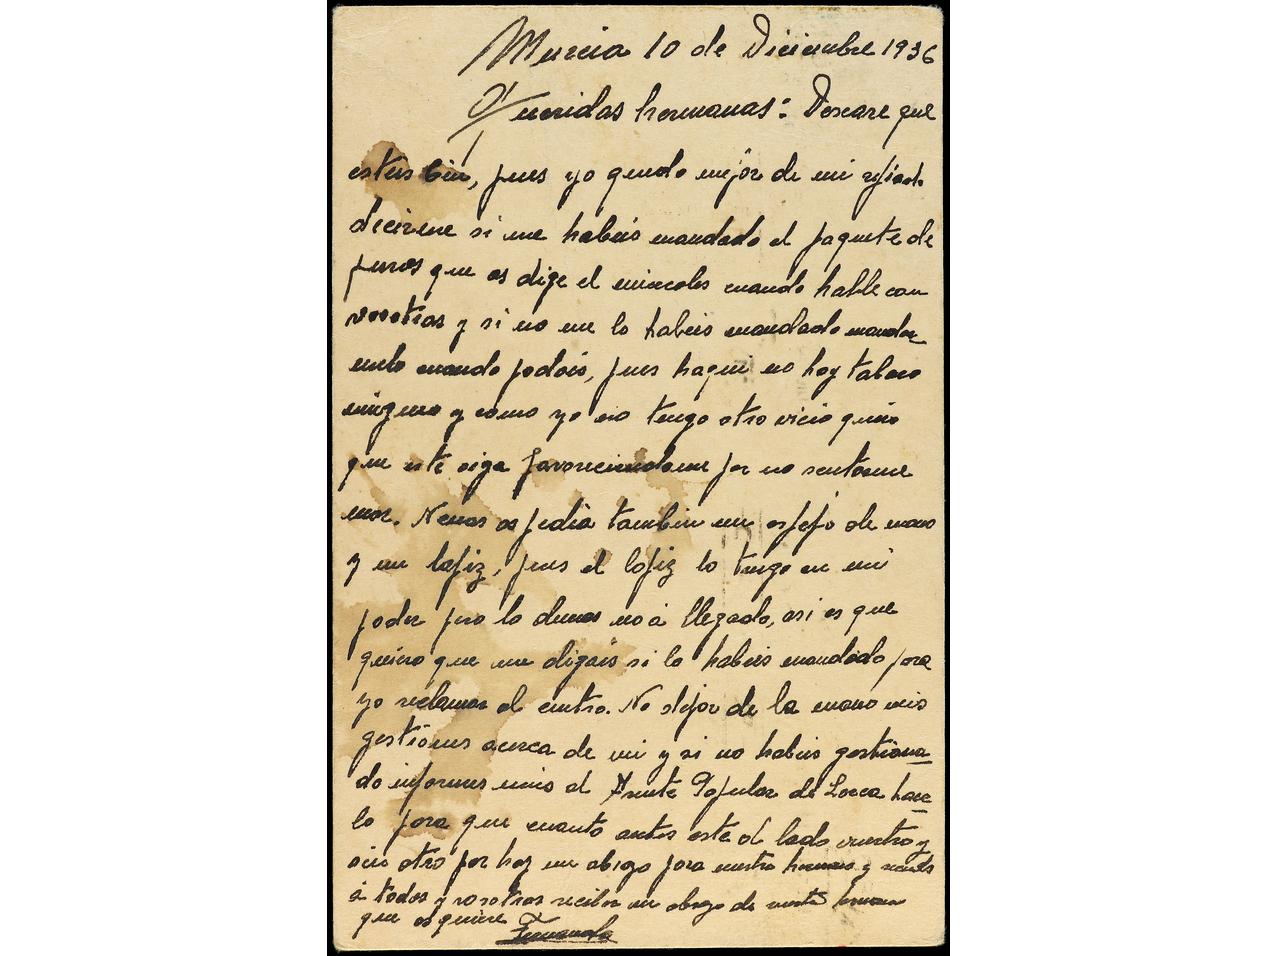 Murcia 10 de Diciembre 1936
Queridas hermanas: Deseare que
esteis bien, pues yo quedo mejor de mi
decirme si me habeis mandado el paquete de
puros que os dige el miercoles cuando hable con
vosotras y si no me lo habeis mandado mandar
melo cuando podais, pues haqui no hay tabaco
ninguno y como yo no tengo otro vicio quiero
que este siga favoreciendome por no sentarme
mal. Nenas os pedia tambien un espejo de mano
y un lapiz, pues el lapiz lo tengo en mi
poder pero lo demas no á llegado, asi es que
quiero que me digais si lo habeis mandado para
yo reclamar al centro. No dejar de la mano mis
gestiones acerca de mi y si no habeis gestiona-
do informes mios al Frente Popular de Lorca hacer
lo para que cuanto antes este al lado vuestro y
sin otro por hoy un abrazo para nuestro hermano y
á todos y vosotras recibir un abrazo de vuestro hermano
que os quiere